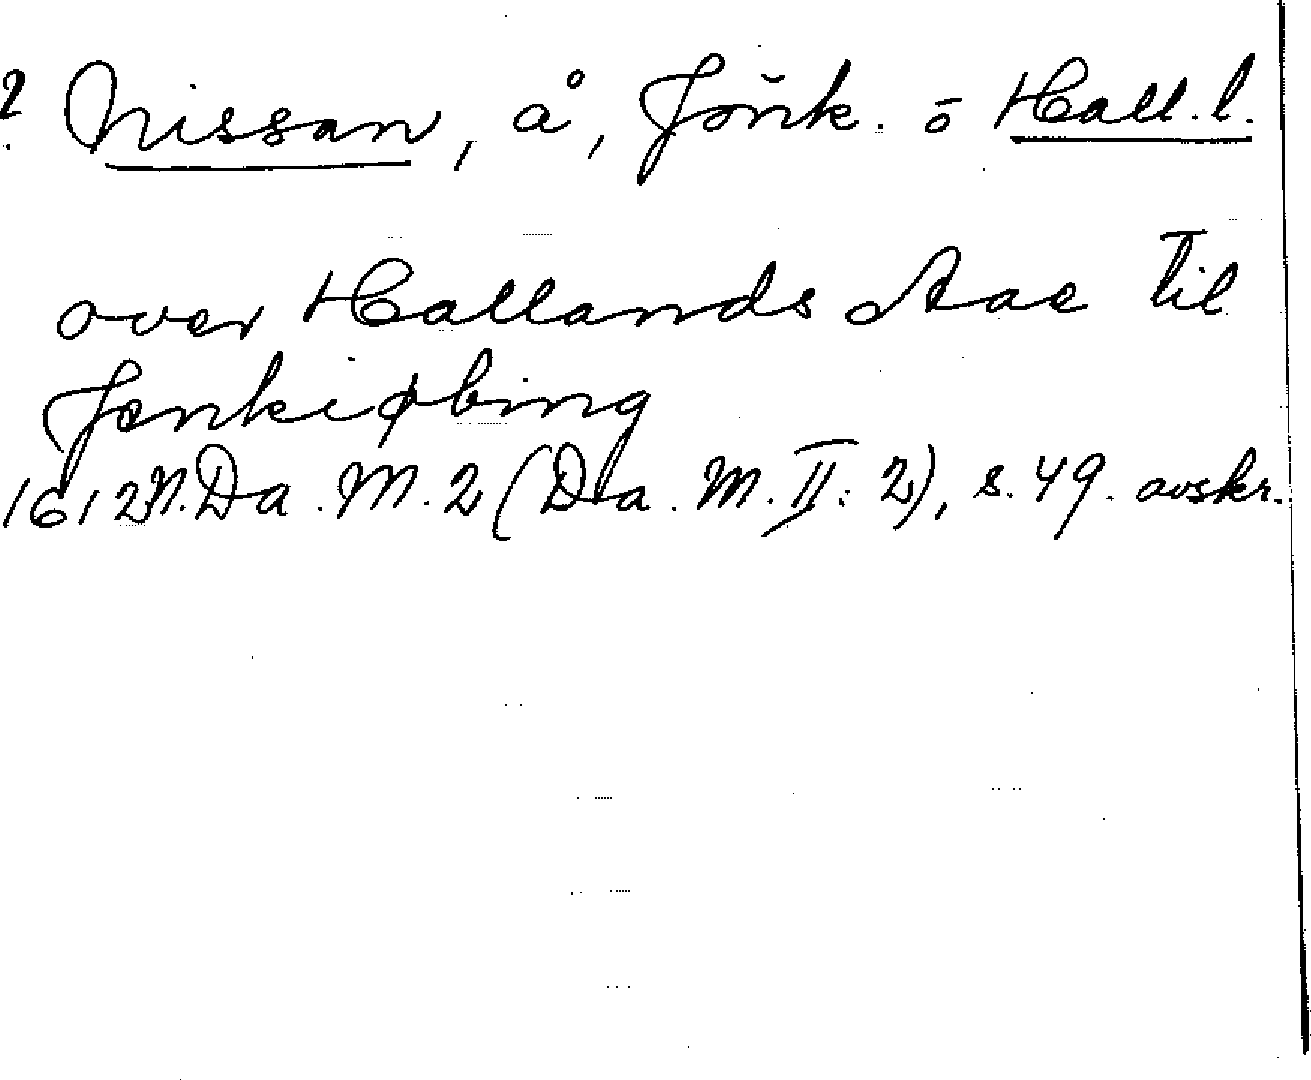 ? Nissan, å, Jönk. o Hall.l.
over Hallands Aae til
Jenkiøbing
1612 N. Da. M. 2 (Da. M. II: 2), s. 49. avskr.